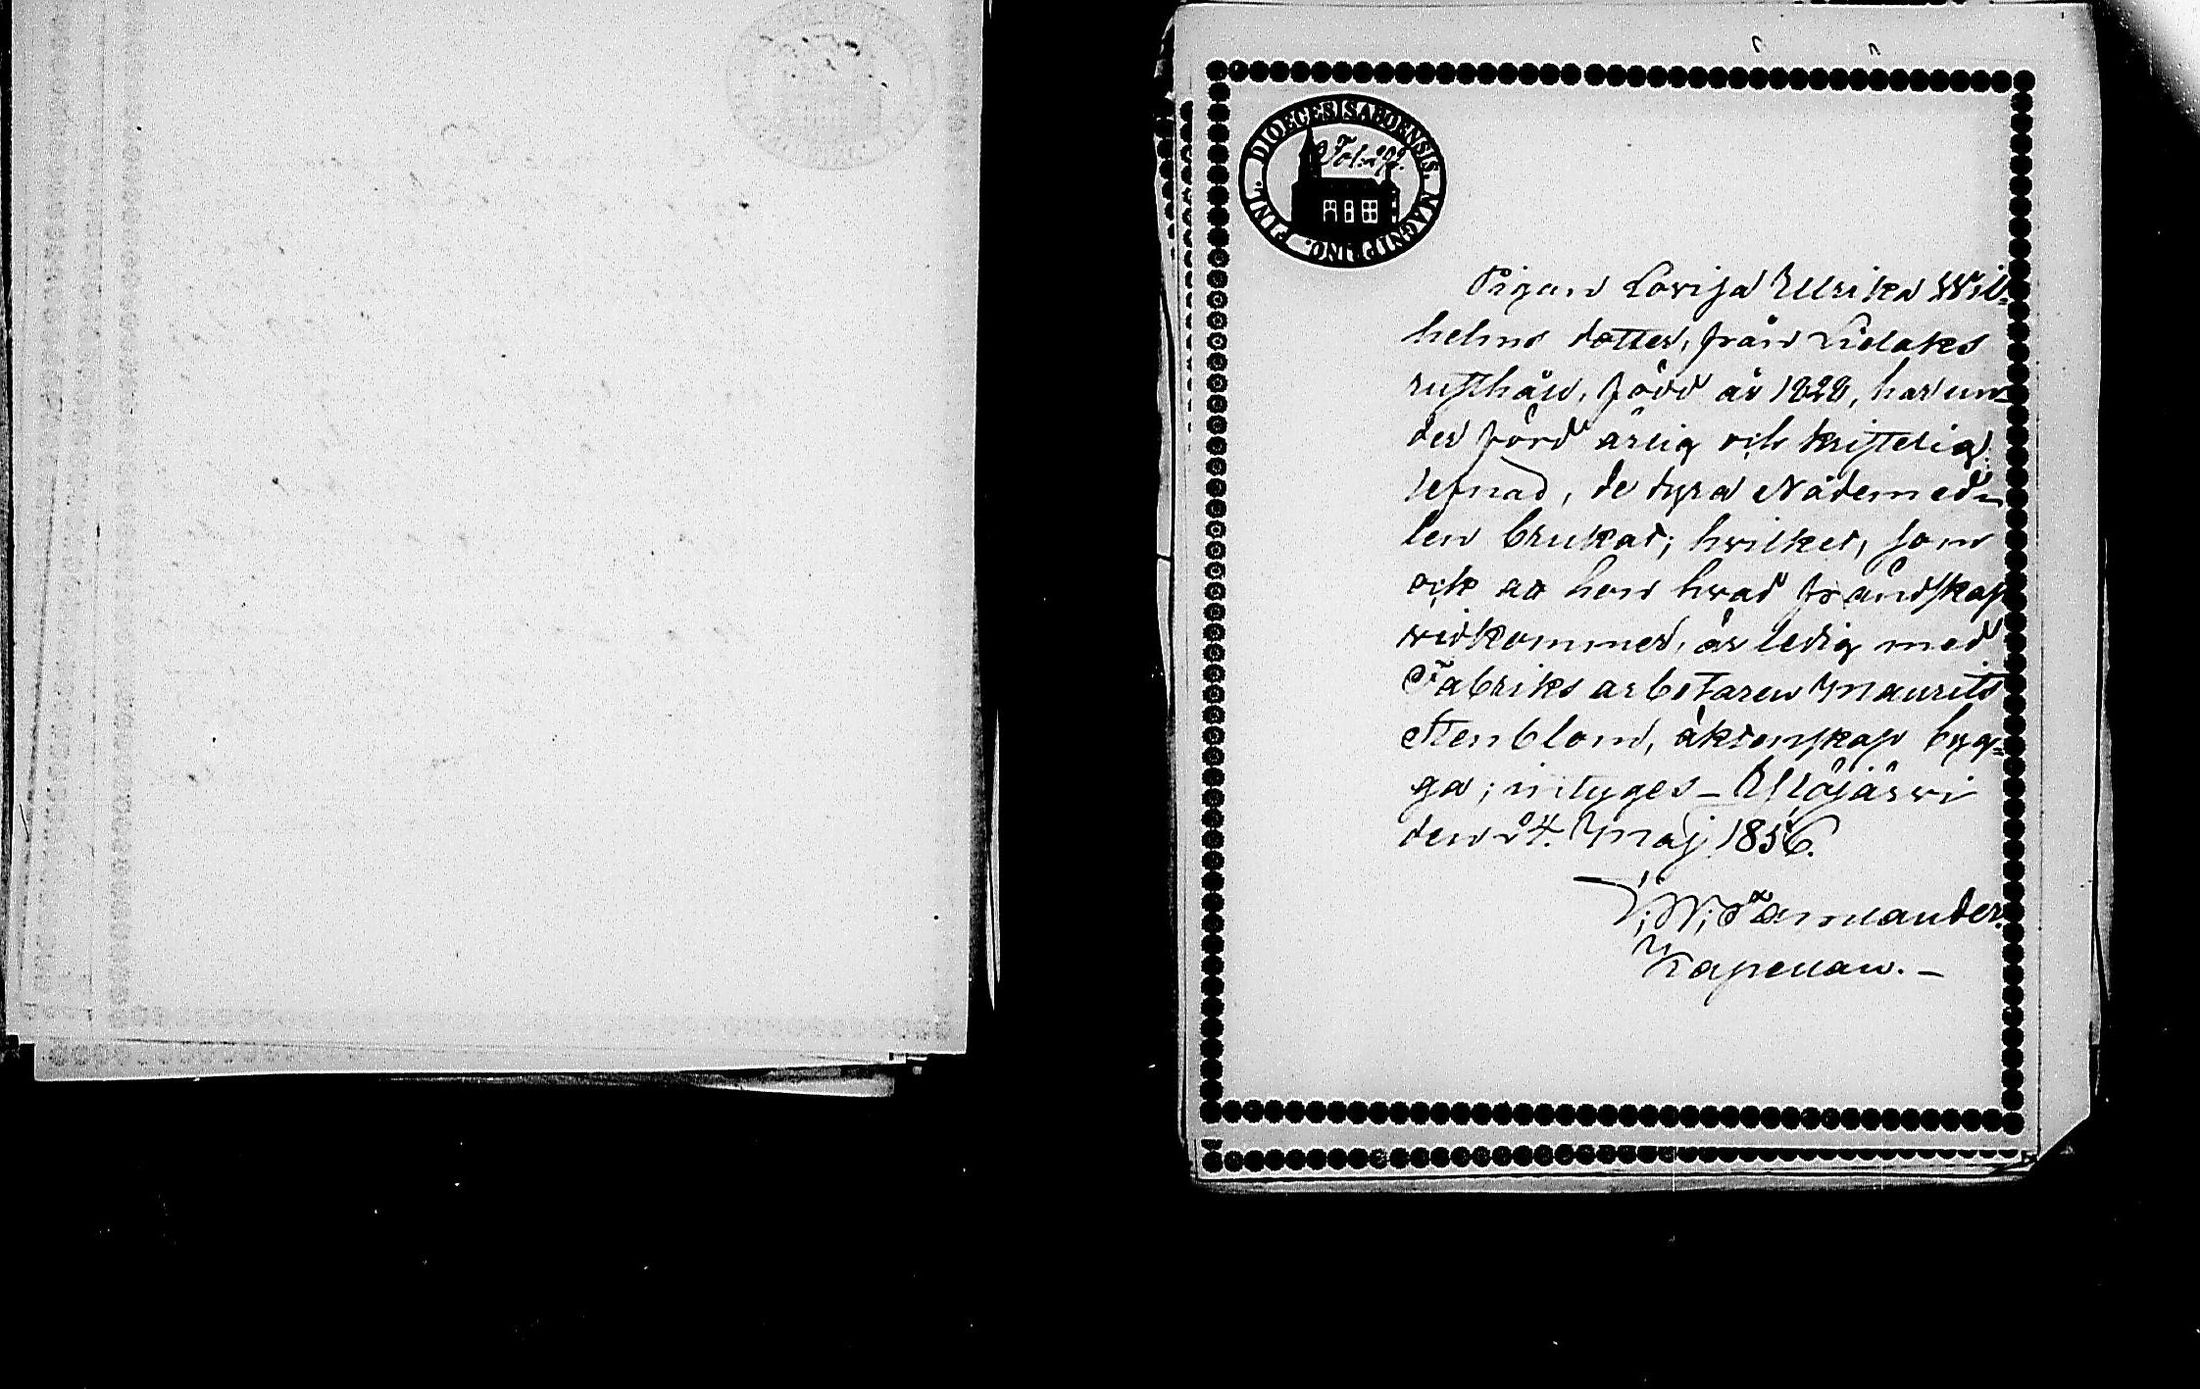 DIOECESIS ABOENSIS. MAGNI PRINC. FINL.
Fol: 292.
Pigan Lovisa Ulrika Wil-
helms dotter, från Kolaks
rusthåll, född år 1828, har un-
der förd ärlig och kristelig
lefnad, de dyra Nådemed-
len brukat; hvilket, som
ock at hon hvad frändskap
widkommer, är ledig med
Fabriks arbetaren Maurits
Stenblom, äktenskap byg-
ga; intyges – Ylöjärvi
den 24. Maj 1856.
Kapellan. –